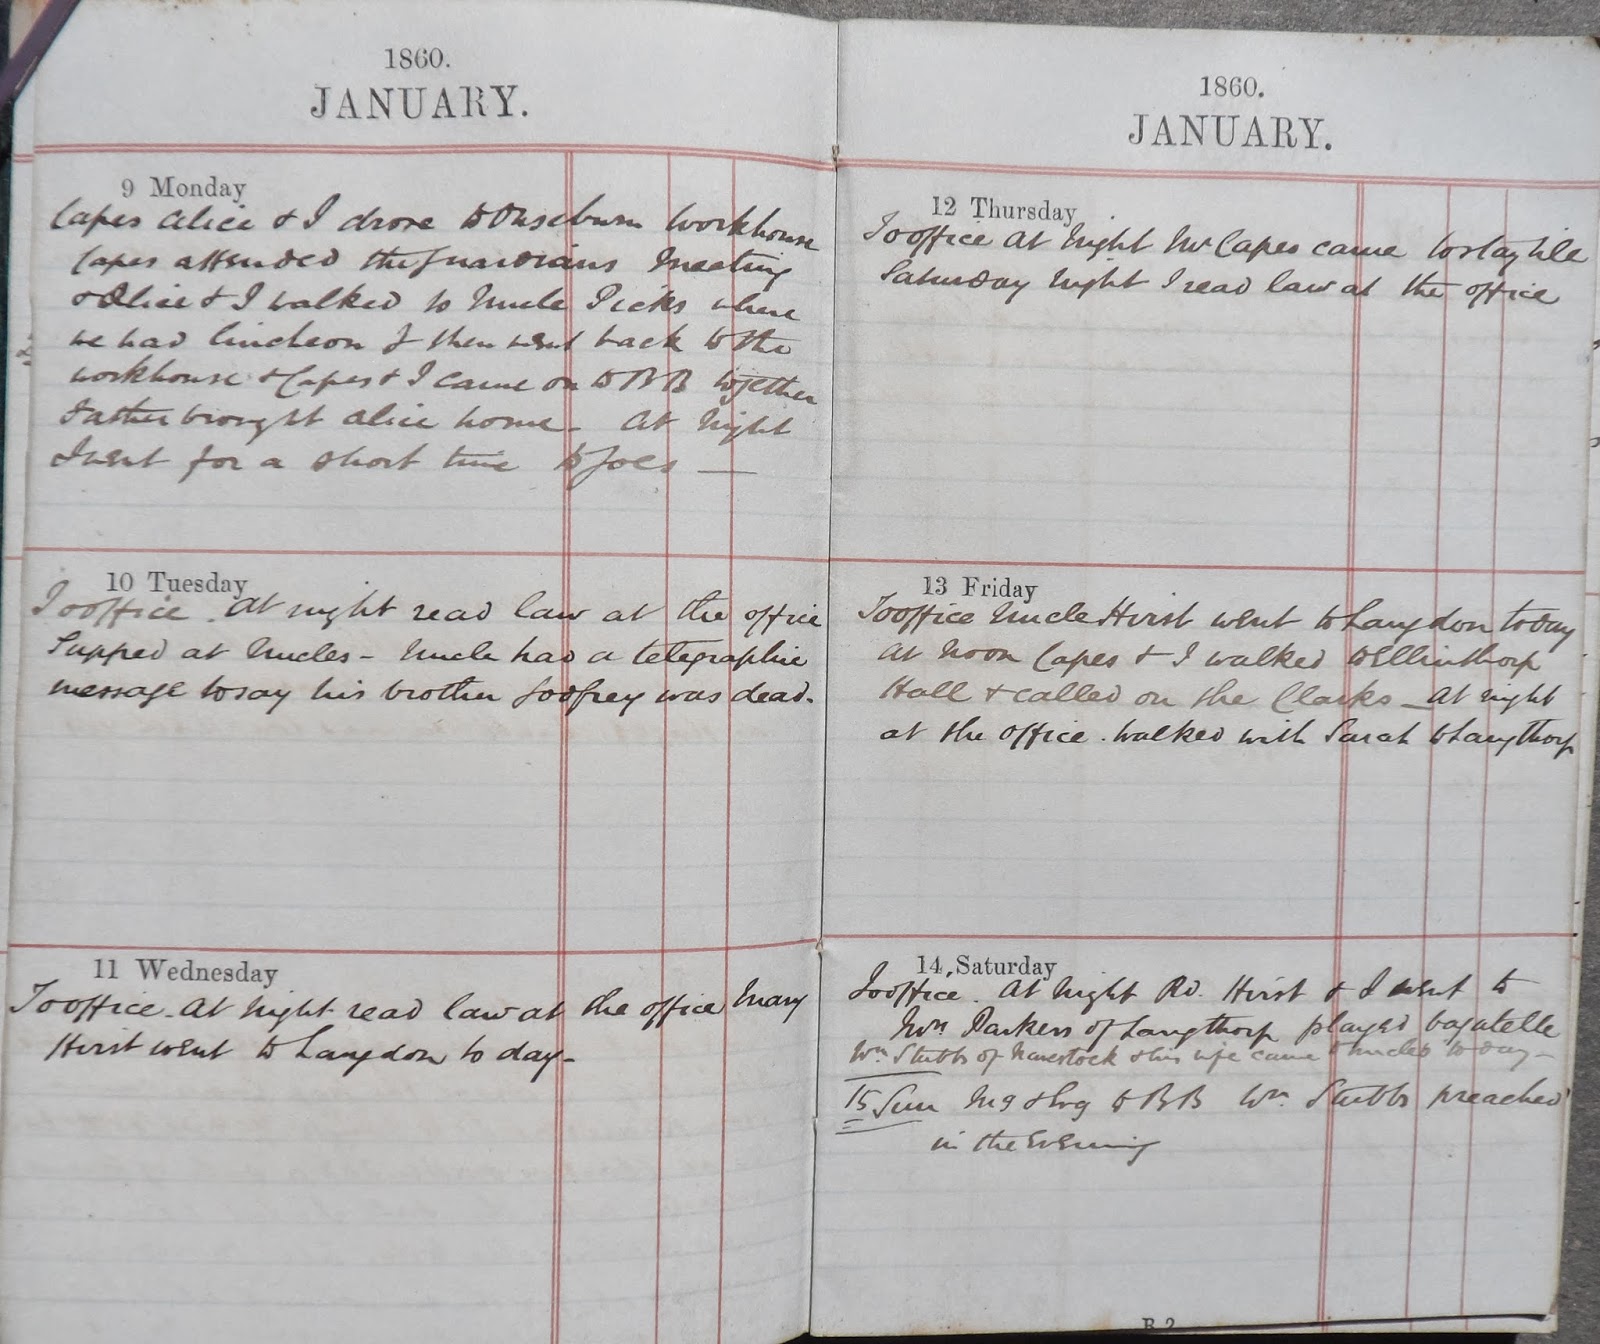 1860.
JANUARY.
9 Monday
Capes Alice & I drove to Ouseburn Workhouse
Capes attended the Guardians Meeting
& Alice & I walked to Uncle Picks where
we had luncheon & then went back to the
workhouse & Capes & I came on to BB together
Father brought Alice home - At Night
I went for a short time to Joes —
10 Tuesday
To office. At night read law at the office
Supped at Uncles - Uncle had a telegraphic
message to say his brother Godfrey was dead.
11 Wednesday
To office. At Night read law at the office Mary
Hirst went to Langdon to day -
1860.
JANUARY.
12 Thursday
To office At Night Mr Capes came to stay till
Saturday Night I read law at the office
13 Friday
To office Uncle Hirst went to Langdon today
At Noon Capes & I walked to Ellinthorp
Hall & called on the Clarks - At night
at the office. Walked with Sarah to Langthorp
14 Saturday
To office. At Night Rd. Hirst & I went to
Wm Parkers of Langthorp played bagatelle
Wm Stubbs of Navestock & his wife came to Uncles to day -
15 Sun Mg & Evg to BB Wm Stubbs preached
in the Evening